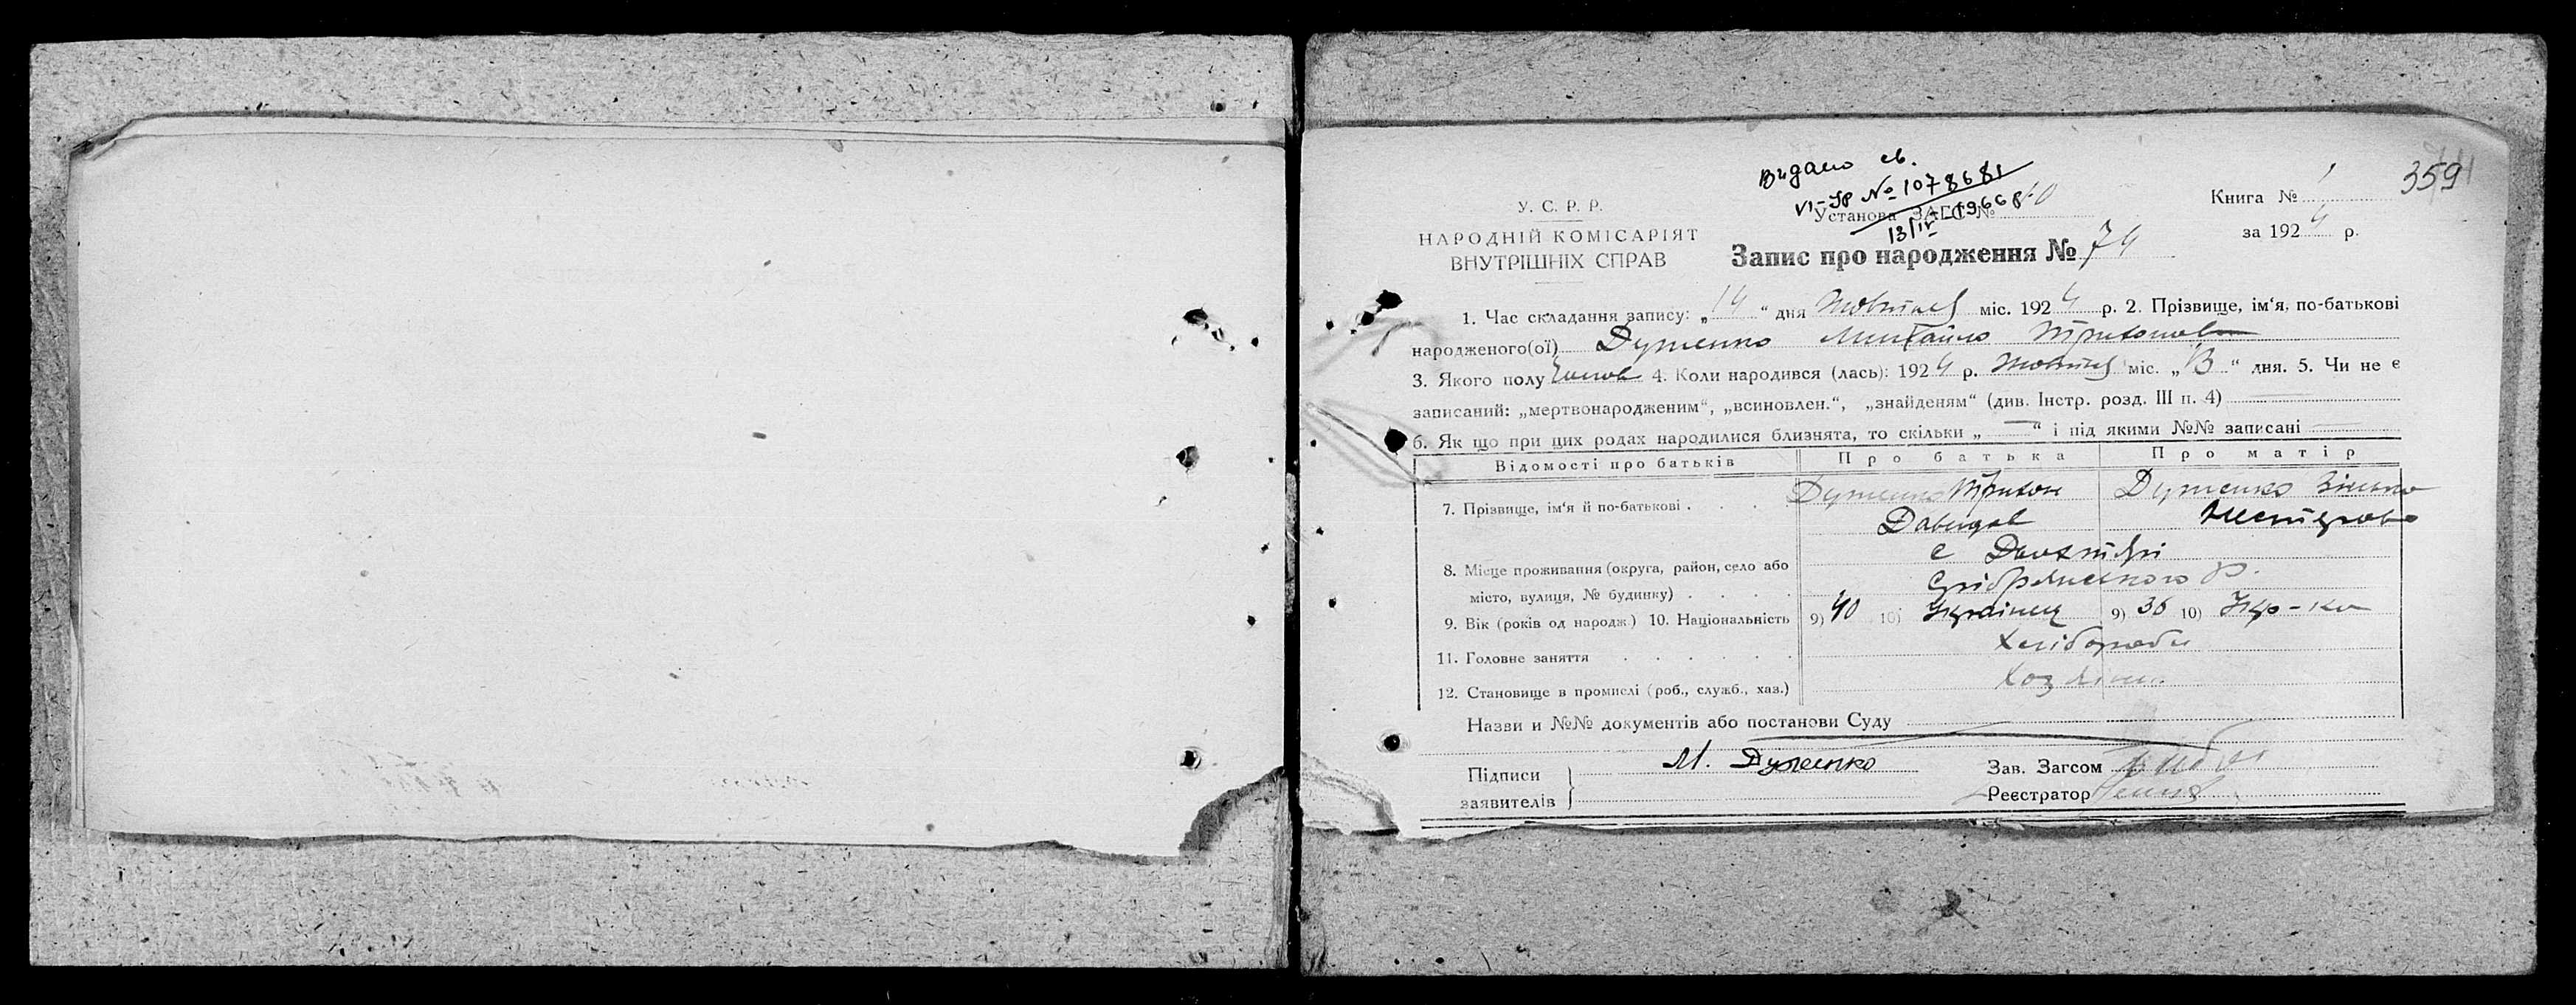 359
Видано св.
VI-ЯР № 1078681
13/IV-1966 р
У. С. Р. Р.
НАРОДНІЙ КОМІСАРІЯТ
ВНУТРІШНІХ СПРАВ
Установа ЗАГС №
Книга № 1
за 1924 р.
Запис про народження № 74
1. Час складання запису: „14“ дня Жовтня міс. 1924 р. 2. Прізвище, ім‘я, по-батькові
народженого(ої) Душенко Михайло Трихонов
3. Якого полу Чолов 4. Коли народився (лась): 1924 р. Жовтня міс. „13“ дня. 5. Чи не є
записаний: „мертвонародженим“, „всиновлен.“, „знайденям“ (див. Інстр. розд. III п. 4)
6. Як що при цих родах народилися близнята, то скільки „—“ і під якими №№ записані —
Відомості про батьків Про батька Про матір
7. Прізвище, ім‘я й по-батькові Душенко Трихон Душенко
Давидов Нестерова
8. Місце проживання (округа, район, село або с
місто, вулиця, № будинку) Срібрянського р.
9. Вік (років од народж.) 10. Національність 9) 40 10) Українец 9) 36 10) Укр-ка
11. Головне заняття Хлібороби
12. Становище в промислі (роб., служб., хаз.) Хозяїни
Назви и №№ документів або постанови Суду
Підписи
заявителів
М. Душенко
Зав. Загсом
Реєстратор